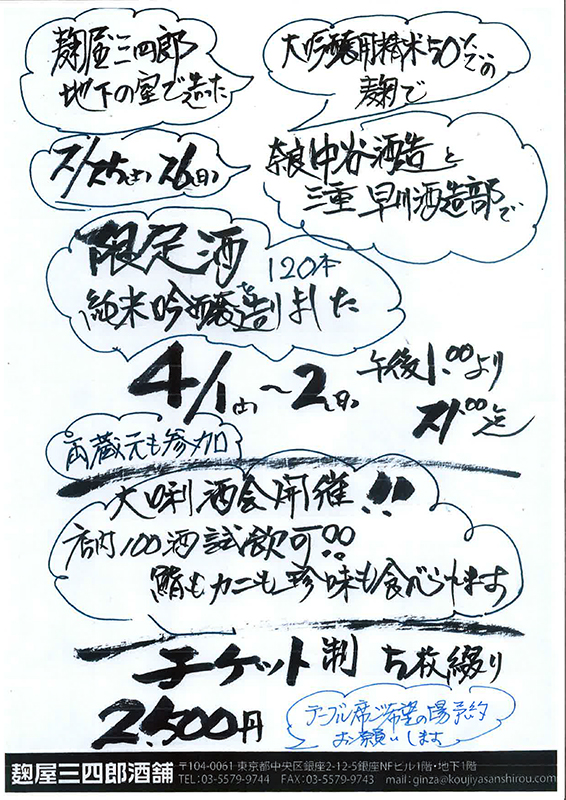 麹屋三四郎
地下の室で造った
大吟醸用精米50%での
麹で
2/25(土) 26(日)
奈良 中谷酒造と
三重 早川酒造部で
限定酒 120本
純米吟醸を造りました
4/1(土)～2(日) 午後1:00より
21:00迄
両蔵元も参加
大唎酒会開催!!
店内100酒試飲可!!
鮨もカニも珍味も食べられます
チケット制 5枚綴り
2,500円
テーブル席ご希望の場予約
お願いします
麹屋三四郎酒舗
〒104-0061 東京都中央区銀座2-12-5銀座NFビル1階・地下1階
TEL:03-5579-9744 FAX:03-5579-9743 mail:ginza@koujiyasanshirou.com